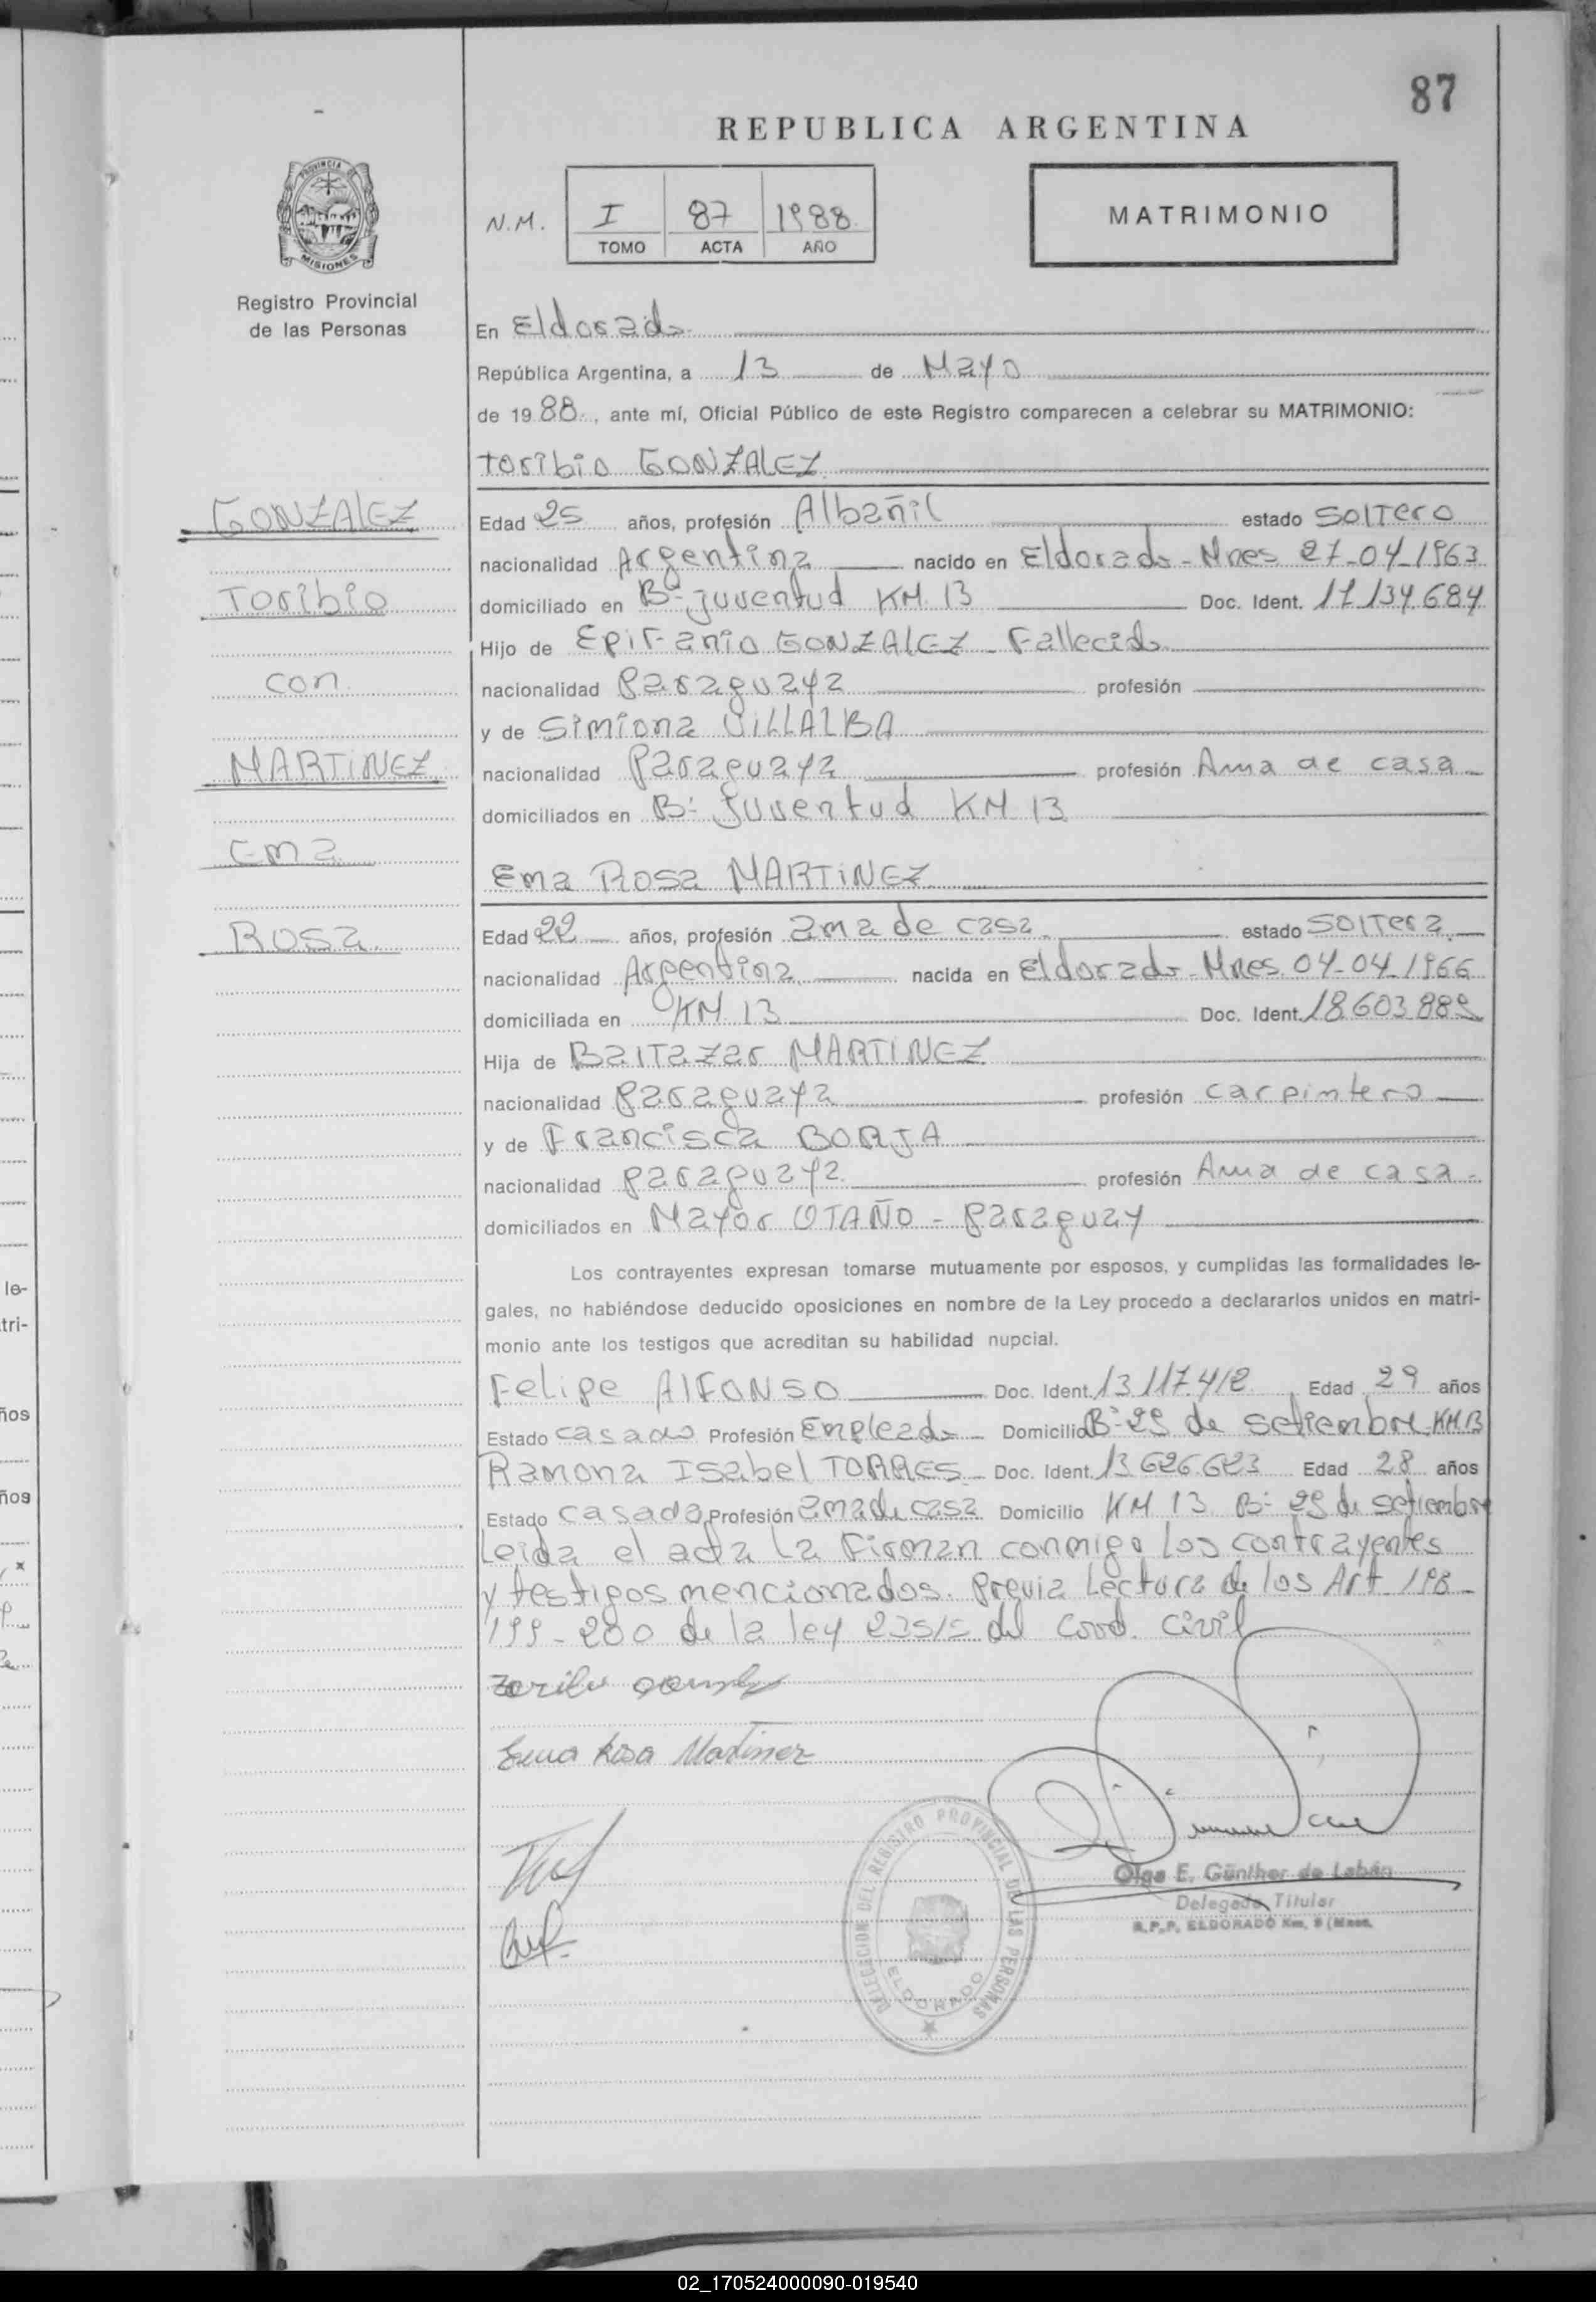 87
REPUBLICA ARGENTINA
PROVINCIA DE MISIONES
Registro Provincial
de las Personas
N.M.
I 87 1988
TOMO ACTA AÑO
MATRIMONIO
En Eldorado
República Argentina, a 13 de Mayo
de 1988, ante mí, Oficial Público de este Registro comparecen a celebrar su MATRIMONIO:
Toribio GONZALEZ
GONZALEZ
Toribio
con
MARTINEZ
Ema
Rosa
Edad 25 años, profesión Albañil estado Soltero
nacionalidad Argentina nacido en Eldorado - Mnes 27-04-1963
domiciliado en Bº Juventud KM 13 Doc. Ident. 17.134.684
Hijo de Epifanio GONZALEZ - Fallecido
nacionalidad Paraguaya profesión
y de Simiona VILLALBA
nacionalidad Paraguaya profesión Ama de casa
domiciliados en Bº Juventud KM 13
Ema Rosa MARTINEZ
Edad 22 años, profesión ama de casa estado Soltera
nacionalidad Argentina nacida en Eldorado - Mnes 04-04-1966
domiciliada en KM 13 Doc. Ident. 18.603.889
Hija de Baltazar MARTINEZ
nacionalidad Paraguaya profesión carpintero
y de Francisca BORJA
nacionalidad Paraguaya profesión Ama de casa
domiciliados en Mayor OTAÑO - Paraguay
Los contrayentes expresan tomarse mutuamente por esposos, y cumplidas las formalidades le-
gales, no habiéndose deducido oposiciones en nombre de la Ley procedo a declararlos unidos en matri-
monio ante los testigos que acreditan su habilidad nupcial.
Felipe ALFONSO Doc. Ident. 13.117.412 Edad 29 años
Estado casado Profesión Empleado Domicilio Bº 29 de setiembre KM13
Ramona Isabel TORRES Doc. Ident. 13.626.623 Edad 28 años
Estado casada Profesión ama de casa Domicilio KM 13 Bº 29 de setiembre
Leida el acta la Firman conmigo los contrayentes
y testigos mencionados. Previa Lectura de los Art 198-
199-200 de la ley 23515 del Cood. Civil
Ema Rosa Martinez
DELEGACION DEL REGISTRO PROVINCIAL DE LAS PERSONAS
ELDORADO
Olga E. Günther de Labán
Delegada Titular
R.P.P. ELDORADO Km. 9 (Mnes.
le-
tri-
ños
ños
02_170524000090-019540